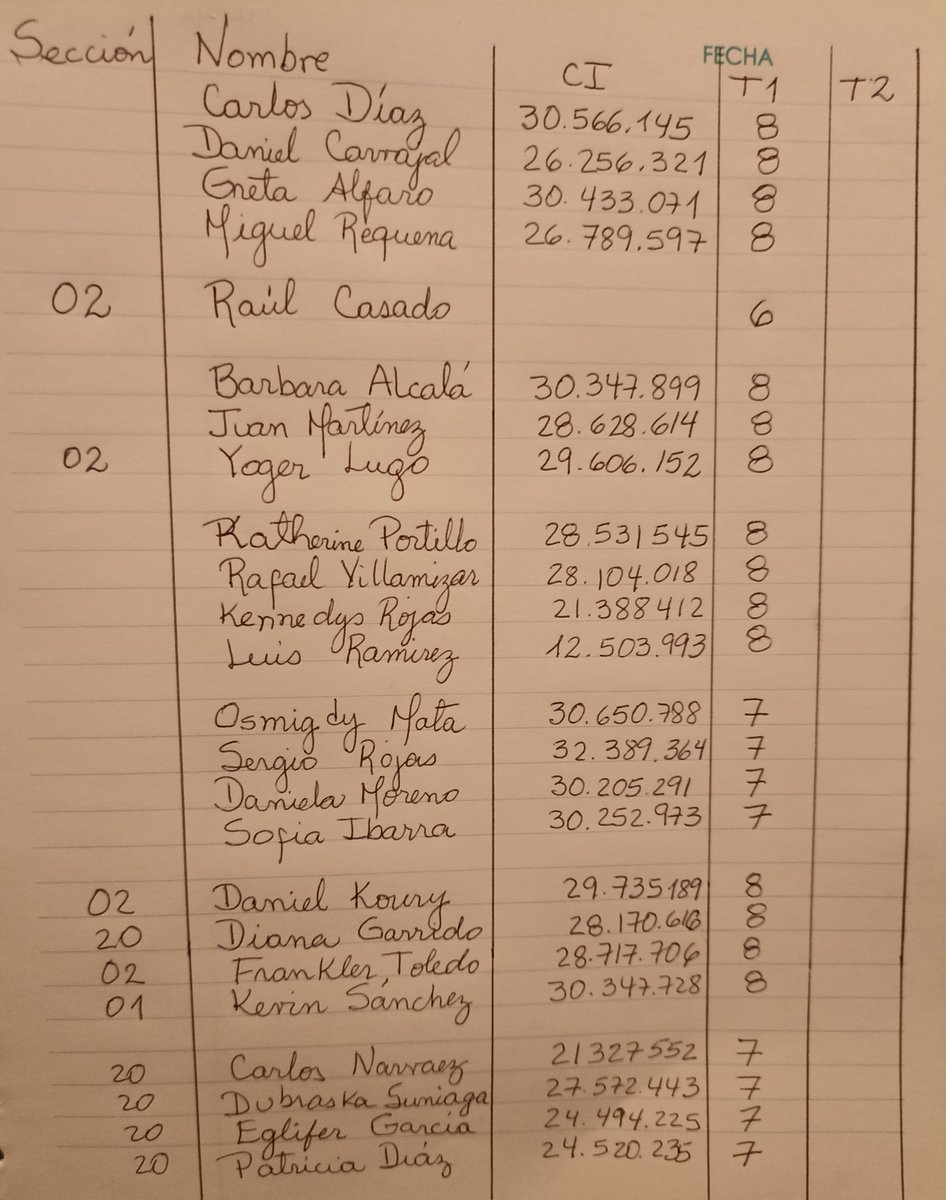 FECHA
Sección Nombre CI T1 T2
Carlos Díaz 30.566.145 8
Daniel Carvajal 26.256.321 8
Greta Alfaro 30.433.071 8
Miguel Requena 26.789.597 8
02 Raúl Casado 6
Barbara Alcalá 30.347.899 8
Juan Martínez 28.628.614 8
02 Yoger Lugo 29.606.152 8
Katherine Portillo 28.531545 8
Rafael Villamizar 28.104.018 8
Kennedys Rojas 21.388412 8
Luis Ramirez 12.503.993 8
Osmigdy Mata 30.650.788 7
Sergio Rojas 32.389.364 7
Daniela Moreno 30.205.291 7
Sofia Ibarra 30.252.973 7
02 Daniel Koury 29.735189 8
20 Diana Garrido 8
02 Frankler Toledo 28.717.706 8
01 Kevin Sánchez 30.347.728 8
20 Carlos Narvaez 21327552 7
20 Dubraska Suniaga 27.572.443 7
20 Eglifer Garcia 24.494.225 7
20 Patricia Diáz 24.520.235 7